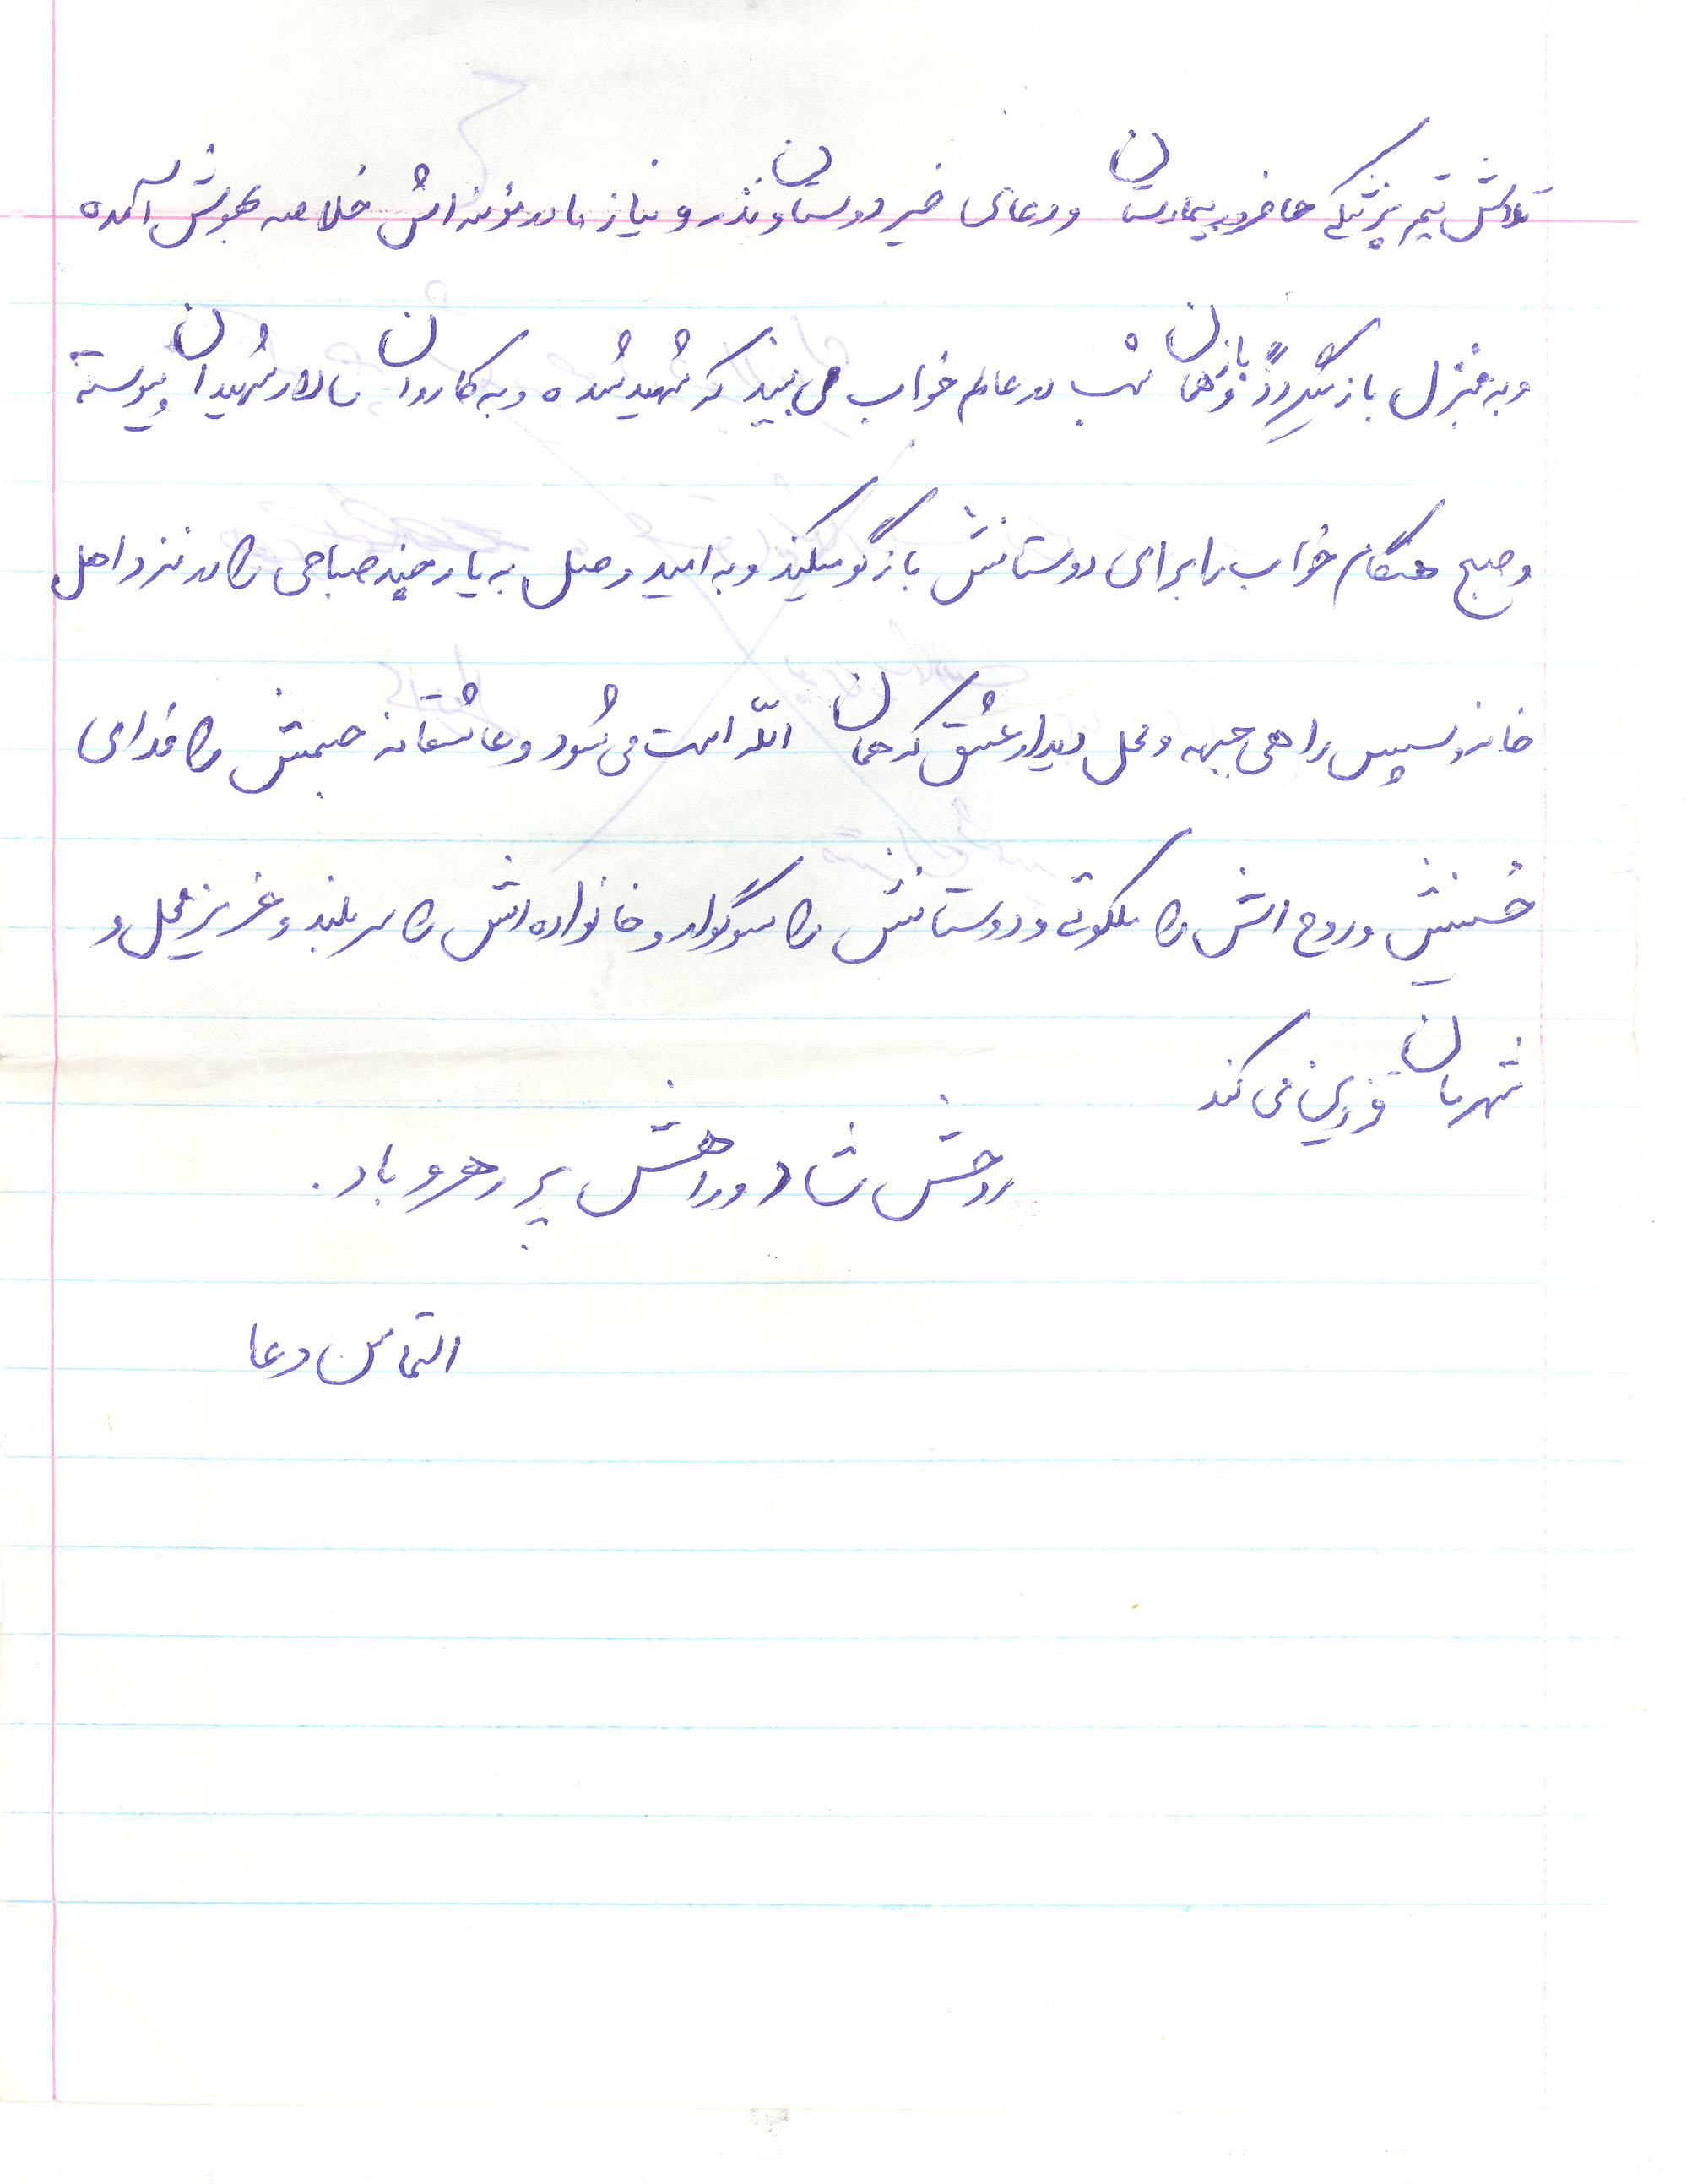 تلاش تیم پزشکی حاضر در بیمارستان و دعای خیر دوستان و نذر و نیاز مادر مؤمنه اش خلاصه بهوش آمده
و به منزل باز میگردد و همان شب در عالم خواب می بیند که شهید شده و به کاروان سالار شهیدان پیوسته
و صبح هنگام خواب را برای دوستانش بازگو میکند و به امید وصل به یار چند صباحی را در نزد اهل
خانه و سپس راهی جبهه و محل دیدار عشق که همان الله است می شود و عاشقانه جسمش را فدای
خمینیش و روح اش را ملکوتی و دوستانش را سوگوار و خانواده اش را سربلند و عزیز محل و
شهرمان قزوین می کند
روحش شاد و راهش پر رهرو باد.
التماس دعا